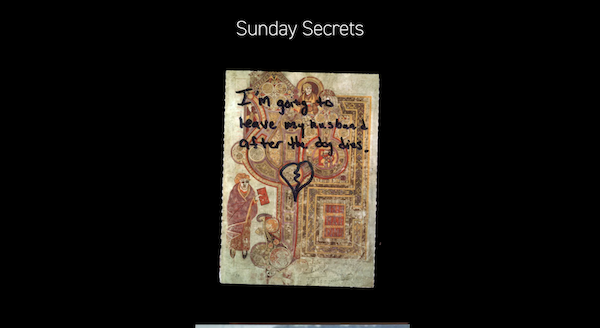 Sunday Secrets
I'm going to
leave my husband
after the dog dies.